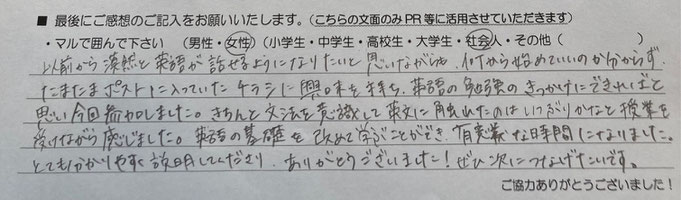 ■ 最後にご感想のご記入をお願いいたします。(こちらの文面のみPR等に活用させていただきます)
・マルで囲んで下さい (男性・女性)(小学生・中学生・高校生・大学生・社会人・その他( )
以前から漠然と英語が話せるようになりたいと思いながらも、何から始めていいのか分からず、
たまたまポストに入っていたチラシに興味を持ち、英語の勉強のきっかけにできればと
思い今回参加しました。きちんと文法を意識して英文に触れたのはいつぶりかなと授業を
受けながら感じました。英語の基礎を改めて学ぶことができ、有意義な時間になりました。
とても分かりやすく説明してくださり、ありがとうございました!ぜひ次につなげたいです。
ご協力ありがとうございました!